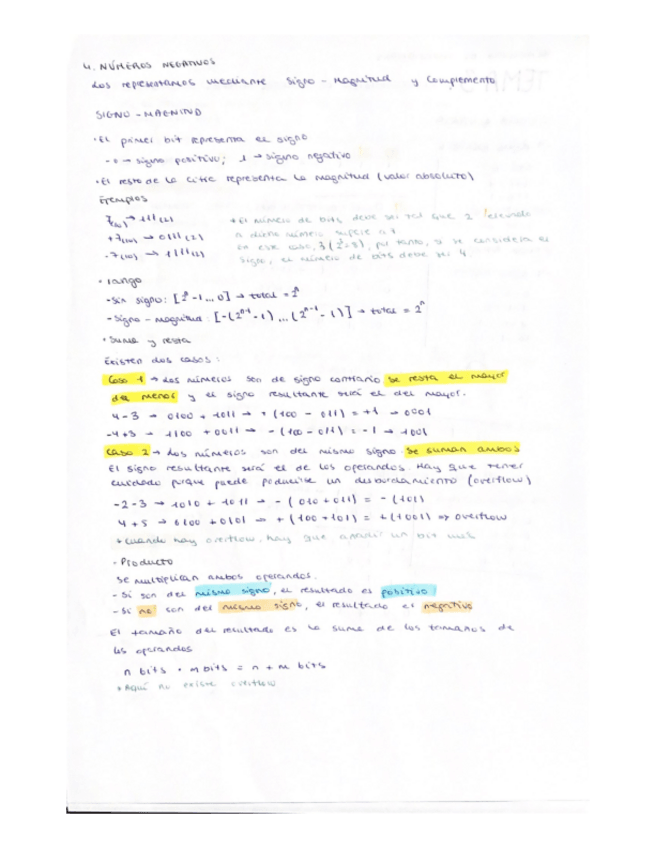 4. NÚMEROS NEGATIVOS
Los representamos mediante Signo - Magnitud y Complemento
SIGNO - MAGNITUD
· El primer bit representa el signo
- 0 → signo positivo; 1 → signo negativo
· El resto de la cifra representa la magnitud (valor absoluto)
Ejemplos
7(10) → 111(2)
+7(10) → 0111(2)
-7(10) → 1111(2)
* El número de bits debe ser tal que 2 elevado
a dicho número supere a 7
en este caso, 3 (2³=8), por tanto, si se considera el
signo, el número de bits debe ser 4.
· Rango
- Sin signo: [2ⁿ-1...0] → total = 2ⁿ
- Signo - magnitud: [-(2ⁿ⁻¹-1)...(2ⁿ⁻¹-1)] → total = 2ⁿ
· Suma y resta
Existen dos casos:
Caso 1 → Los números son de signo contrario se resta el mayor
del menor y el signo resultante será el del mayor.
4-3 → 0100 + 1011 → + (100 - 011) = +1 → 0001
-4+3 → 1100 + 0011 → - (100 - 011) = -1 → 1001
Caso 2 → Los números son del mismo signo. Se suman ambos
El signo resultante será el de los operandos. Hay que tener
cuidado porque puede producirse un desbordamiento (overflow)
-2-3 → 1010 + 1011 → - (010 + 011) = - (101)
4+5 → 0100 + 0101 → + (100 + 101) = + (1001) => overflow
* Cuando hay overflow, hay que añadir un bit más
· Producto
Se multiplican ambos operandos.
- Si son del mismo signo, el resultado es positivo
- Si no son del mismo signo, el resultado es negativo
El tamaño del resultado es la suma de los tamaños de
los operandos
n bits · m bits = n + m bits
* Aquí no existe overflow